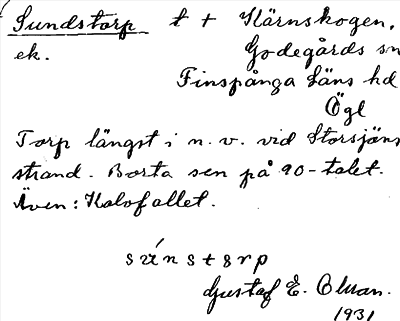 Sundstorp t + Kärnskogen,
ek. Godegårds sn
Finspånga läns hd
Ögl
Torp längst i n. v. vid Storsjöns
strand. Borta sen på 90-talet.
Även: Kalvfallet.
Gustaf E.
1931